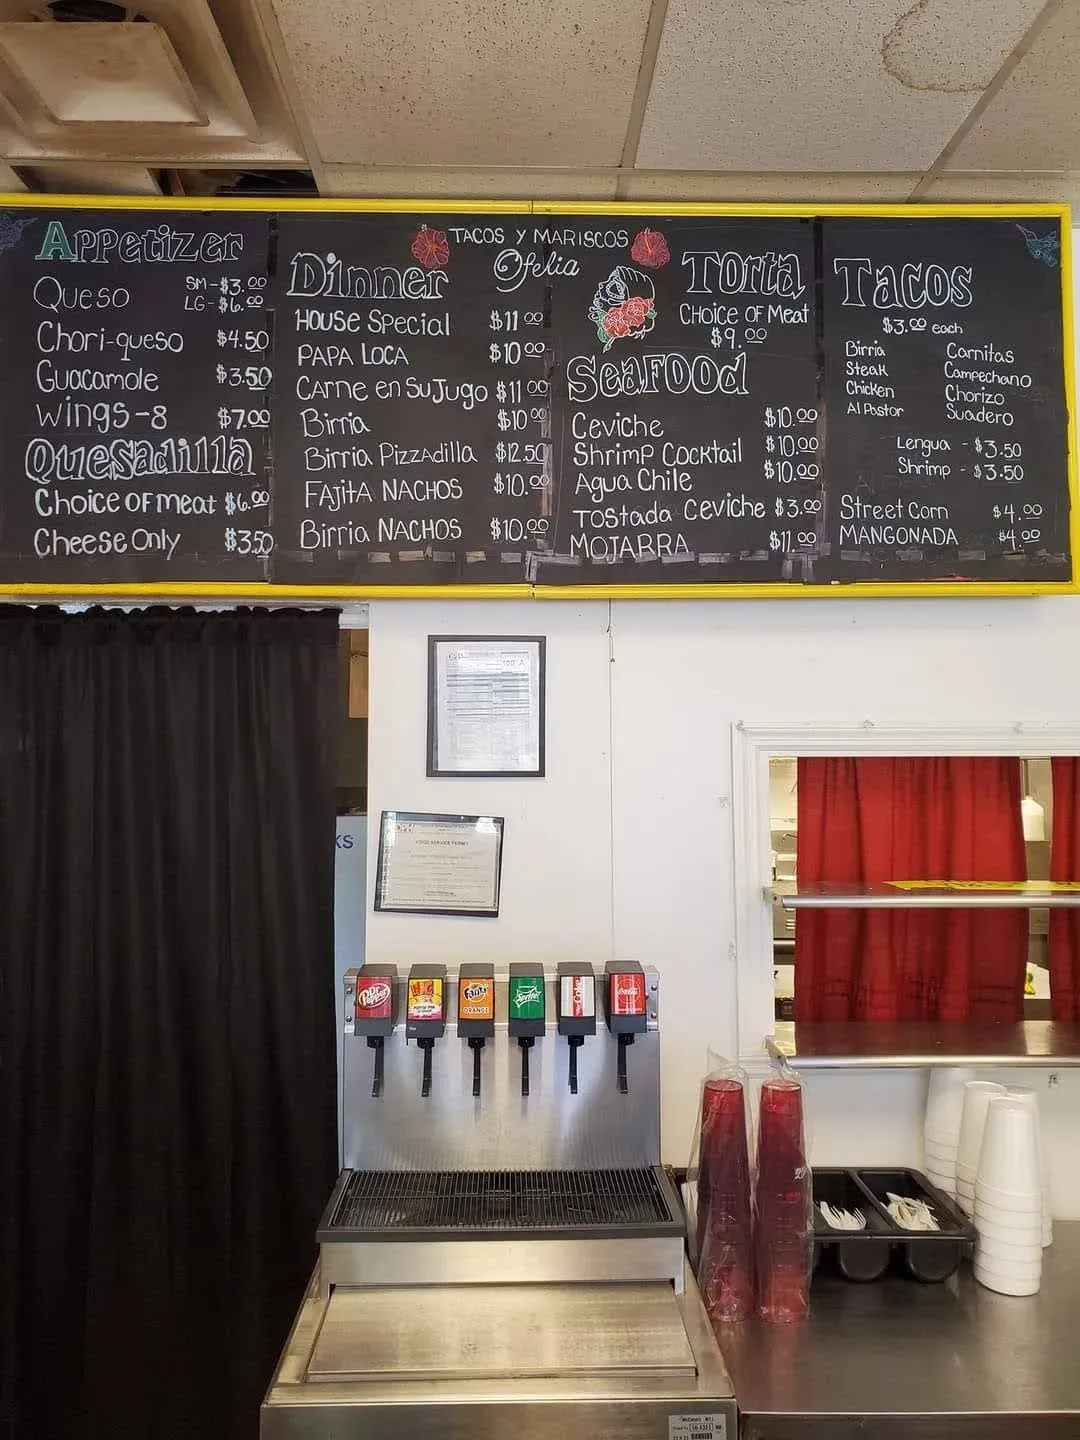 Appetizer
Queso SM-$3.00
LG-$6.00
Chori-queso $4.50
Guacamole $3.50
Wings-8 $7.00
Quesadilla
Choice of meat $6.00
Cheese Only $3.50
TACOS Y MARISCOS
Ofelia
Dinner
House Special $11.00
PAPA LOCA $10.00
Carne en Su Jugo $11.00
Birria $10.00
Birria Pizzadilla $12.50
Fajita NACHOS $10.00
Birria NACHOS $10.00
Torta
Choice of Meat
$9.00
Seafood
Ceviche $10.00
Shrimp Cocktail $10.00
Agua Chile $10.00
Tostada Ceviche $3.00
MOJARRA $11.00
Tacos
$3.00 each
Birria Carnitas
Steak Campechano
Chicken Chorizo
Al Pastor Suadero
Lengua - $3.50
Shrimp - $3.50
Street Corn $4.00
MANGONADA $4.00
FOOD SERVICE PERMIT
KS
Dr Pepper
Fanta
ORANGE
Sprite
Coke
Coca-Cola